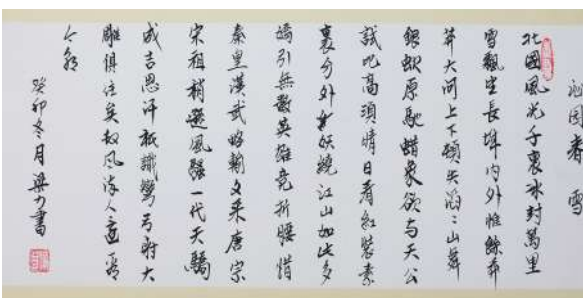 沁园春 雪
北國風光千裏冰封萬里
雪飄望長城内外惟餘莽
莽大河上下頓失滔〻山舞
銀蛇原馳蠟象欲与天公
試比高須晴日看紅裝素
裹分外妖嬈江山如此多
嬌引無數英雄竞折腰惜
秦皇漢武略輸文采唐宗
宋祖稍遜風騷一代天驕
成吉思汗祇識彎弓射大
雕俱往矣数风流人還看
今朝
癸卯冬月梁力書